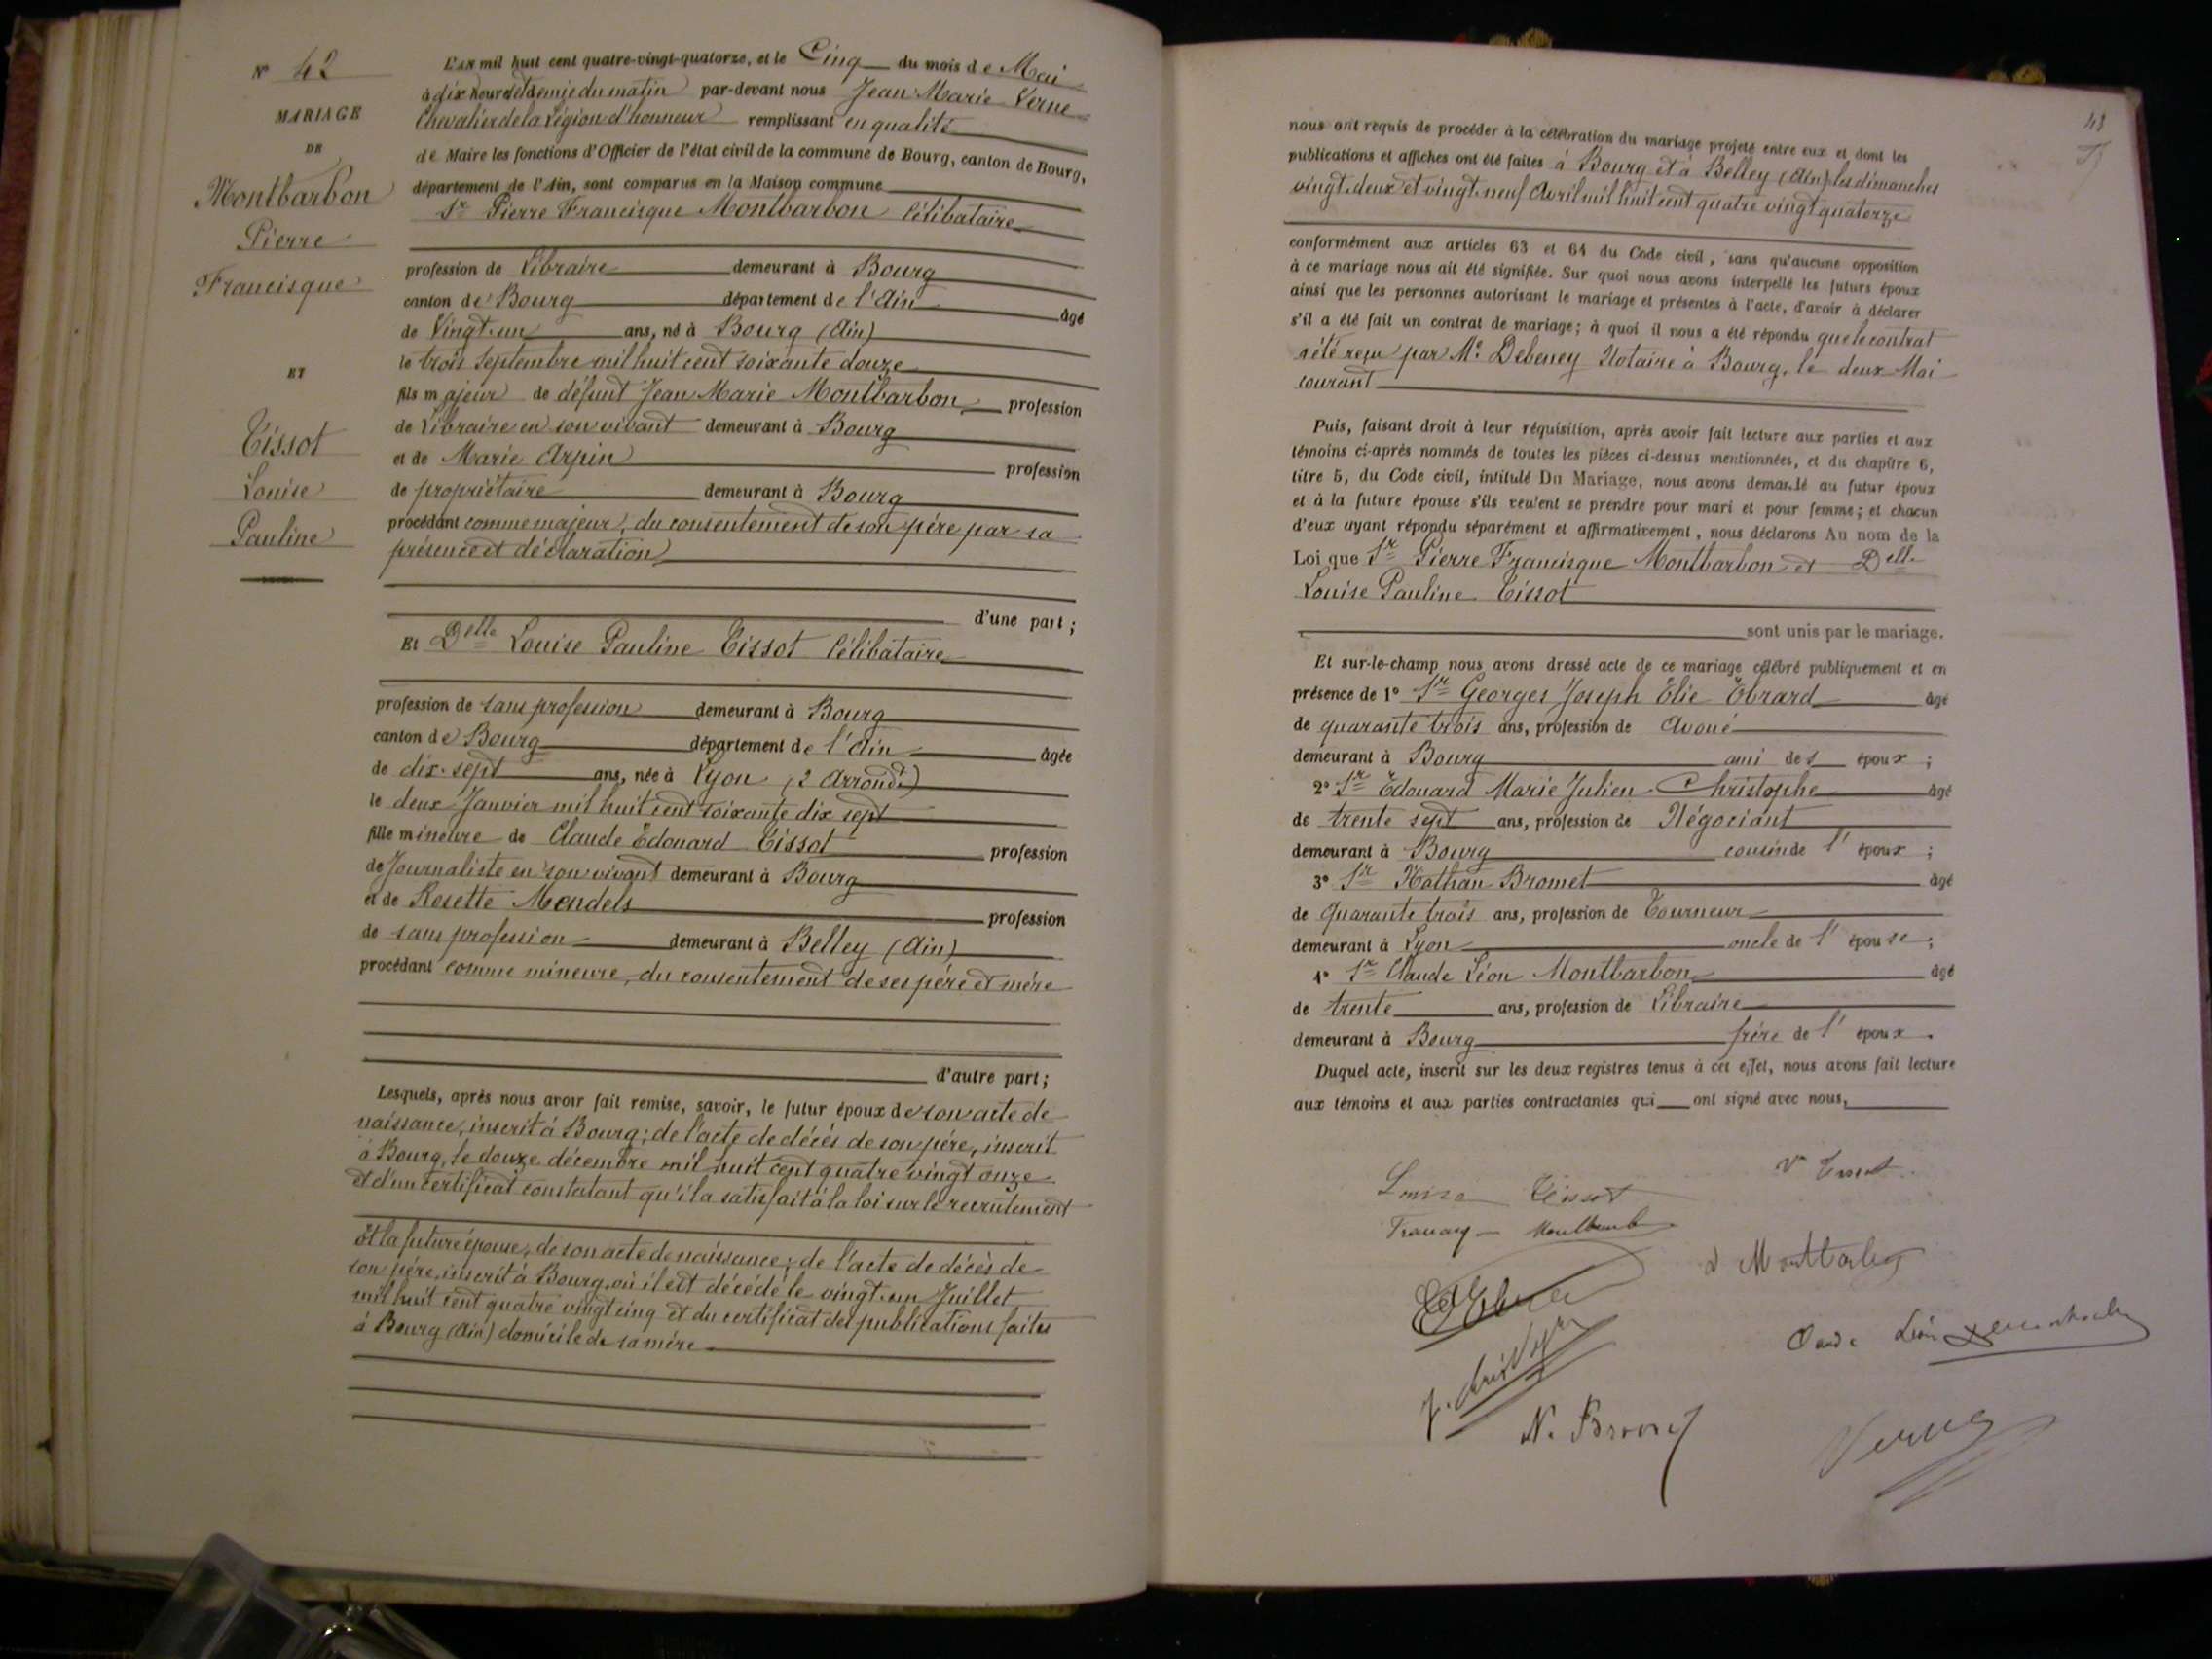 N° 42
MARIAGE
DE
Montbarbon
Pierre
Francisque
ET
Tissot
Louise
Pauline
L'AN mil huit cent quatre-vingt-quatorze, et le Cinq du mois de Mai
à dix heures et demie du matin par-devant nous Jean Marie Verne
Chevalier de la Légion d'honneur remplissant en qualité
de Maire les fonctions d'Officier de l'état civil de la commune de Bourg, canton de Bourg,
département de l'Ain, sont comparus en la Maison commune
Sr Pierre Francisque Montbarbon Célibataire
profession de Libraire demeurant à Bourg
canton de Bourg département de l'Ain âgé
de Vingt-un ans, né à Bourg (Ain)
le trois Septembre mil huit cent soixante douze
fils majeur de défunt Jean Marie Montbarbon profession
de Libraire en son vivant demeurant à Bourg
et de Marie Arpin profession
de propriétaire demeurant à Bourg
procédant comme majeur, du consentement de son père par sa
présence et déclaration
d'une part;
Et Delle Louise Pauline Tissot Célibataire
profession de sans profession demeurant à Bourg
canton de Bourg département de l'Ain âgée
de dix-sept ans, née à Lyon (2 Arrondt)
le deux Janvier mil huit cent soixante dix sept
fille mineure de Claude Edouard Tissot profession
de Journaliste en son vivant demeurant à Bourg
et de Rosette Mendels profession
de sans profession demeurant à Belley (Ain)
procédant comme mineure, du consentement de ses père et mère
d'autre part;
Lesquels, après nous avoir fait remise, savoir, le futur époux de son acte de
naissance, inscrit à Bourg; de l'acte de décès de son père, inscrit
à Bourg, le douze décembre mil huit cent quatre vingt onze
et d'un certificat constatant qu'il a satisfait à la loi sur le recrutement
Et la future épouse, de son acte de naissance; de l'acte de décès de
son père, inscrit à Bourg, où il est décédé le vingt-un Juillet
mil huit cent quatre vingt cinq et du certificat des publications faites
à Bourg (Ain) domicile de sa mère
48
nous ont requis de procéder à la célébration du mariage projeté entre eux et dont les
publications et affiches ont été faites à Bourg et à Belley (Ain) les dimanches
vingt-deux et vingt-neuf Avril mil huit cent quatre vingt quatorze
conformément aux articles 63 et 64 du Code civil, sans qu'aucune opposition
à ce mariage nous ait été signifiée. Sur quoi nous avons interpellé les futurs époux
ainsi que les personnes autorisant le mariage et présentes à l'acte, d'avoir à déclarer
s'il a été fait un contrat de mariage; à quoi il nous a été répondu que le contrat
a été reçu par Me Debeney Notaire à Bourg, le deux Mai
courant
Puis, faisant droit à leur réquisition, après avoir fait lecture aux parties et aux
témoins ci-après nommés de toutes les pièces ci-dessus mentionnées, et du chapitre 6,
titre 5, du Code civil, intitulé Du Mariage, nous avons demandé au futur époux
et à la future épouse s'ils veulent se prendre pour mari et pour femme; et chacun
d'eux ayant répondu séparément et affirmativement, nous déclarons Au nom de la
Loi que Sr Pierre Francisque Montbarbon et Delle
Louise Pauline Tissot
sont unis par le mariage.
Et sur-le-champ nous avons dressé acte de ce mariage célébré publiquement et en
présence de 1° Sr Georges Joseph Élie Ebrard âgé
de quarante trois ans, profession de Avoué
demeurant à Bourg ami des époux;
2° Sr Edouard Marie Julien Christophe âgé
de trente sept ans, profession de Négociant
demeurant à Bourg cousin de l'époux;
3° Sr Nathan Bromet âgé
de quarante trois ans, profession de Tourneur
demeurant à Lyon oncle de l'épouse;
4° Sr Claude Léon Montbarbon âgé
de trente ans, profession de Libraire
demeurant à Bourg frère de l'époux.
Duquel acte, inscrit sur les deux registres tenus à cet effet, nous avons fait lecture
aux témoins et aux parties contractantes qui ont signé avec nous,
Louise Tissot
Ve Tissot
Montbarbon
N. Bromet
Verne